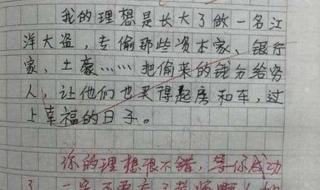 我的理想是长大了做一名江
洋大盗，专偷那些资本家、银行
家、土豪……把偷来的钱分给穷
人，让他们也买得起房和车，过
上幸福的日子。
你的理想很不错，等你成功
了一定不要忘了老师啊